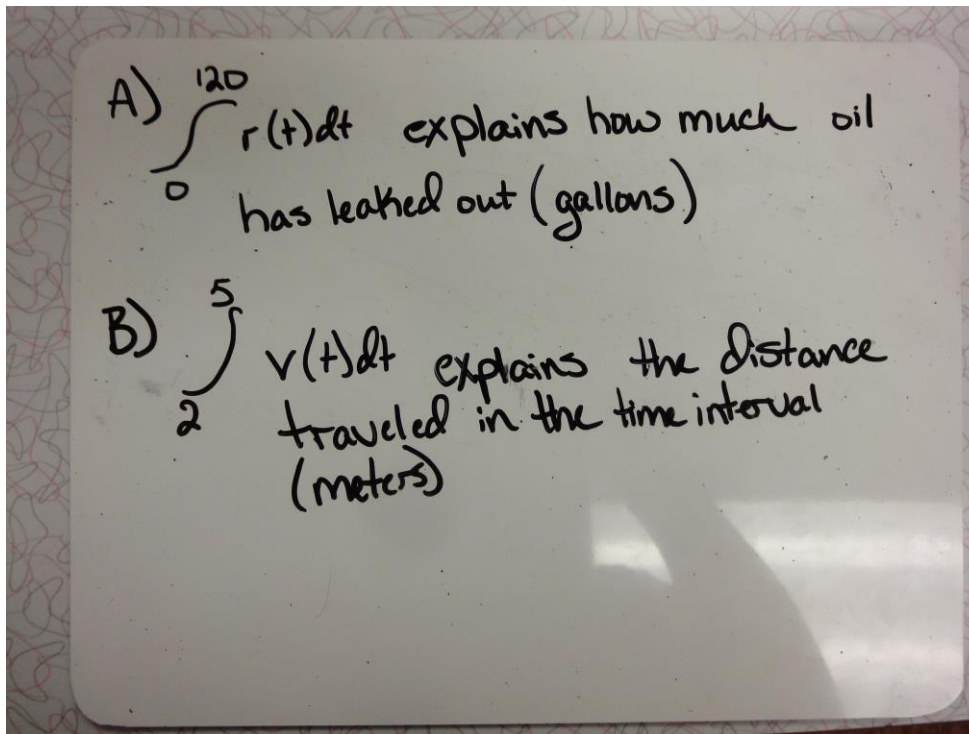 A) ∫₀¹²⁰ r(t)dt explains how much oil
has leaked out (gallons)
B) ∫₂⁵ v(t)dt explains the distance
traveled in the time interval
(meters)